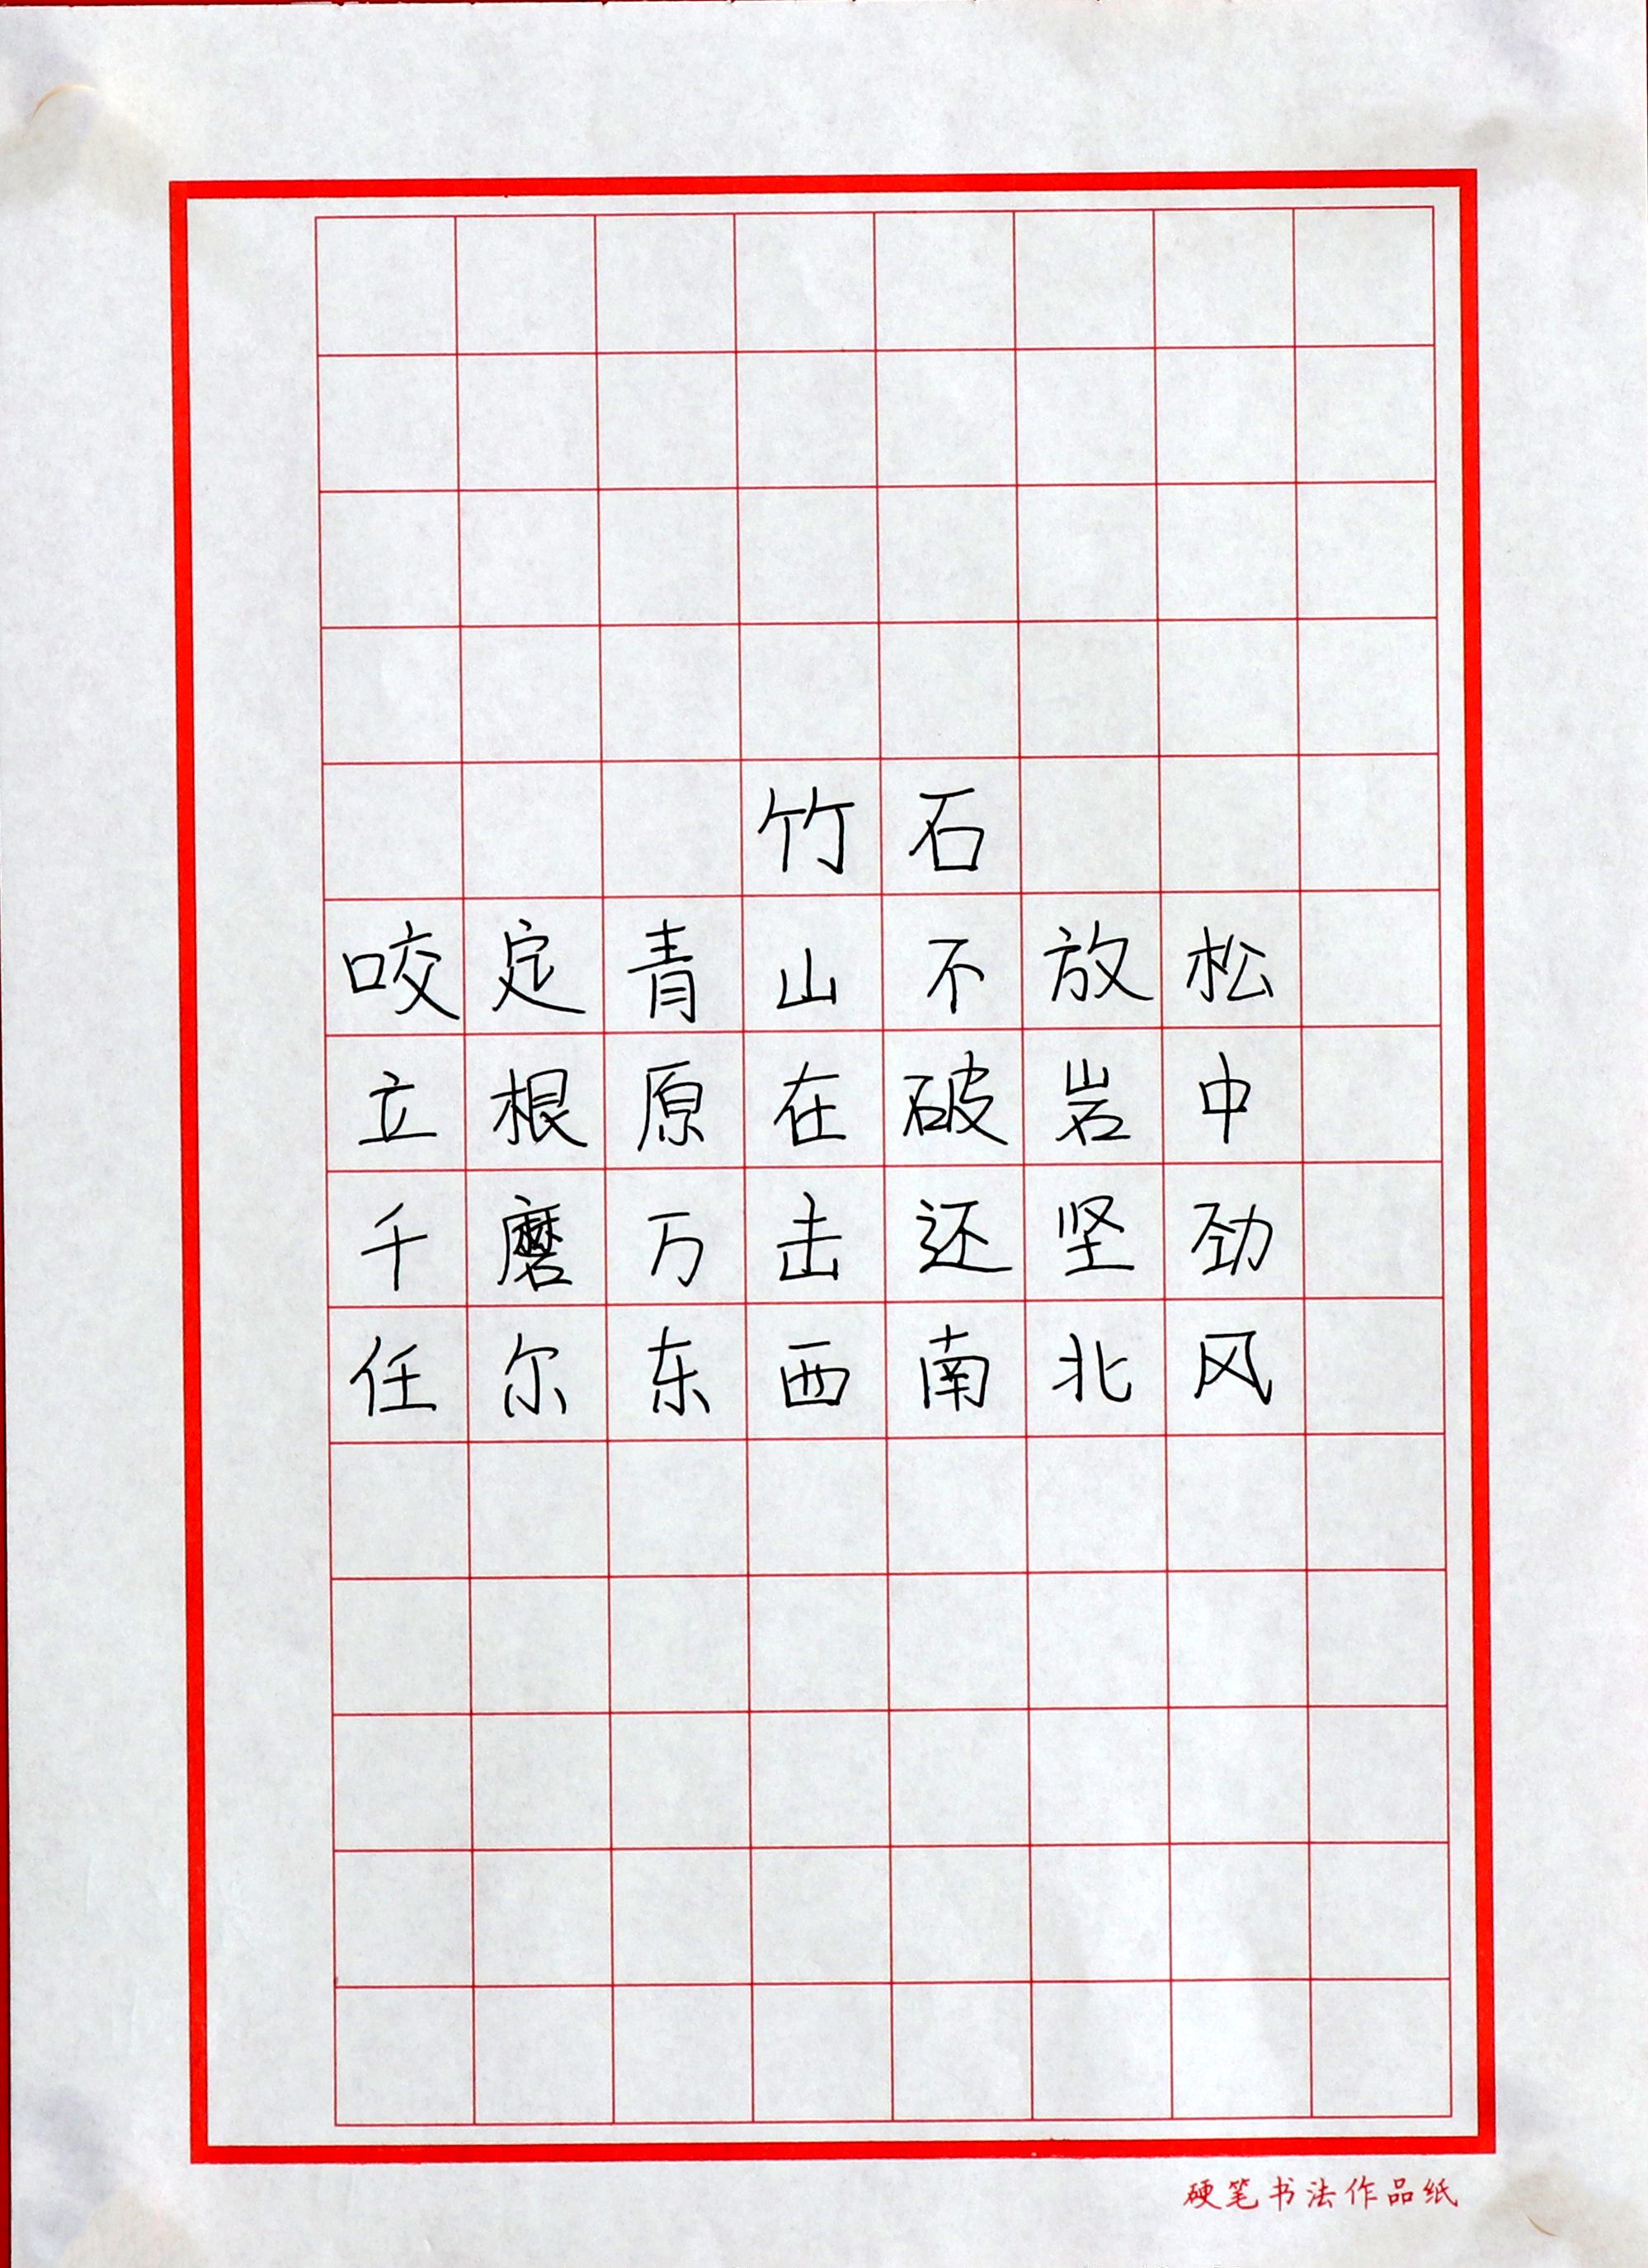 竹石
咬定青山不放松
立根原在破岩中
千磨万击还坚劲
任尔东西南北风
硬笔书法作品纸